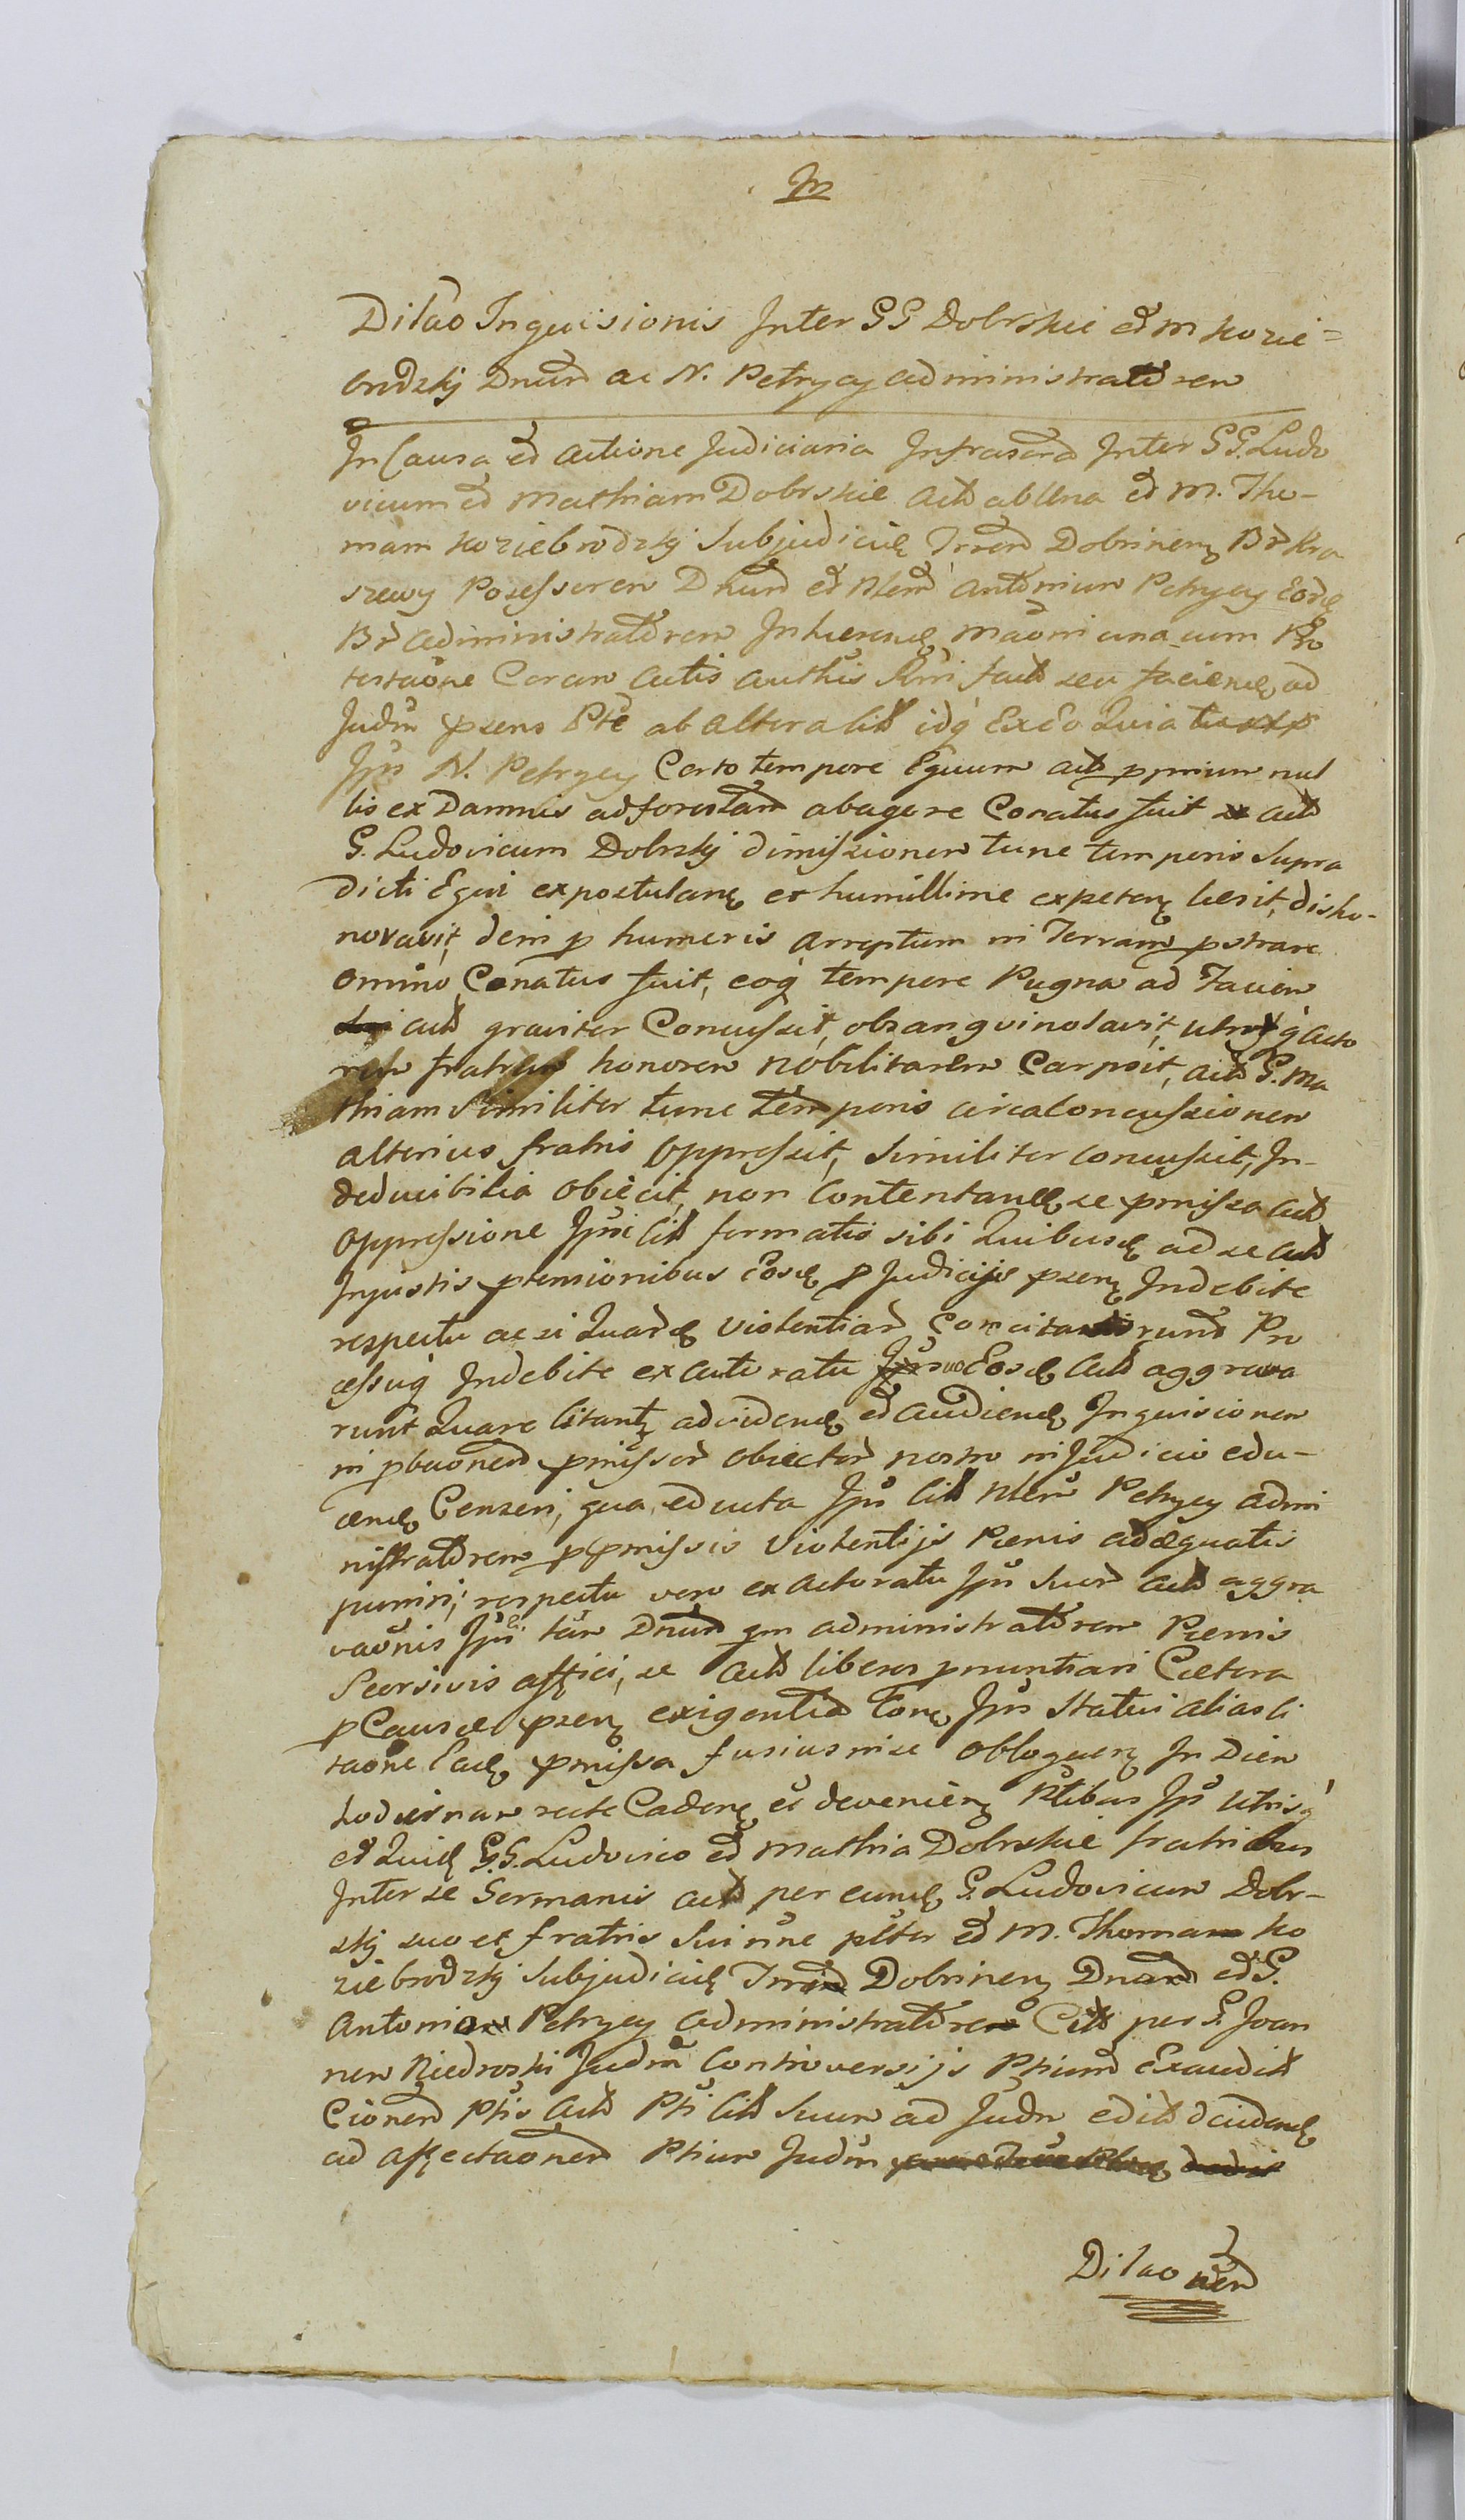 In
Dilao Inquisionis Inter GG Dobrskie et M Kozie=
brodzkj Dnum ac N. Petrycy administratorem
In Causa et actione Judiciaria Infrascra Inter GG. Ludo
vicum et Mathiam Dobrskie act ab Una et M. Tho-
mam Koziebrodzkj Subjudicem Trrem Dobrinen Br Kra
szewy Posessorem Dnum et Nlem Antonium Petrycy Eord
Br administratorem Inherend Maoni una cum Pro
testaone Coram actis authis Rmi fact seu faciend ad
Judm psens Pte ab altera citt idq Ex Eo Quia
Ips N. Petrycy Certo tempore Equum act pprium nul
lis ex Damnis ad forestam abagere Conatus fuit act
G. Ludovicum Dobrzkj dimissionem tunc temporis Supra
dicti Equi expostulan et humillime expeten lesit, disho-
noravit, dein p humeris arreptum in Terram pstrare
omino Conatus fuit, eoq tempore Pugna ad Faciem
act graviter Concussit, obsangvinolavit, utrosq acto
rem fratrum honorem nobilitarem Carpsit, act G. Ma
thiam Similiter tunc temporis circa Concussionem
alterius fratris oppressit, Similiter concussit, In-
deducibilia obiecit, non Contentand se pmissa act
oppressione Ipsi citt formatis sibi Quibusd ad se act
Injustis ptensionibus Eosd p Judicijs psen Indebite
respectu ac si Quard violentiar Concitand rund Pro
cessuq Indebite exacturatu Eosd act aggrava
runt Quare citant ad videnд et audiend Inquisionem
in pbaonem pmissor obiector nostro in Judicio edu-
cend Censeri, qua educta Ips citt Nlem Petrycy admi
nistratorem p pmissis Violentijs Pœnis adæquatis
puniri, respectu vero exactoratu Ips suor act aggra
vaonis Ips tam Dnum qm administratorem Pœnis
Seorsivis affici, se act liberos pnuntiari Cætera
p Causæ psen exigentia Ton Ips Statui alias ci
taone Ead pmissa fusius in se obloquen In Diem
hodiernam recte Caden et devenien Ptibus Ips Utrisq
et Quid G.G. Ludovico et Mathia Dobrskie fratribus
Inter se Germanis act per eund G. Ludovicum Dobr-
skj suo et fratris Sui nne plter et M. Thomam Ko
ziebrodzkj Subjudicem Trrem Dobrinen Dnum et G.
Antonium Petrycy administratorem Citt per G. Joan
nem Niedroski Judm Controversijs Ptium Exaudit
Cionem Ptis Act Pti Citt Suum ad Judm edit deciden
ad affectaonem Ptium Judm
Dilaonem